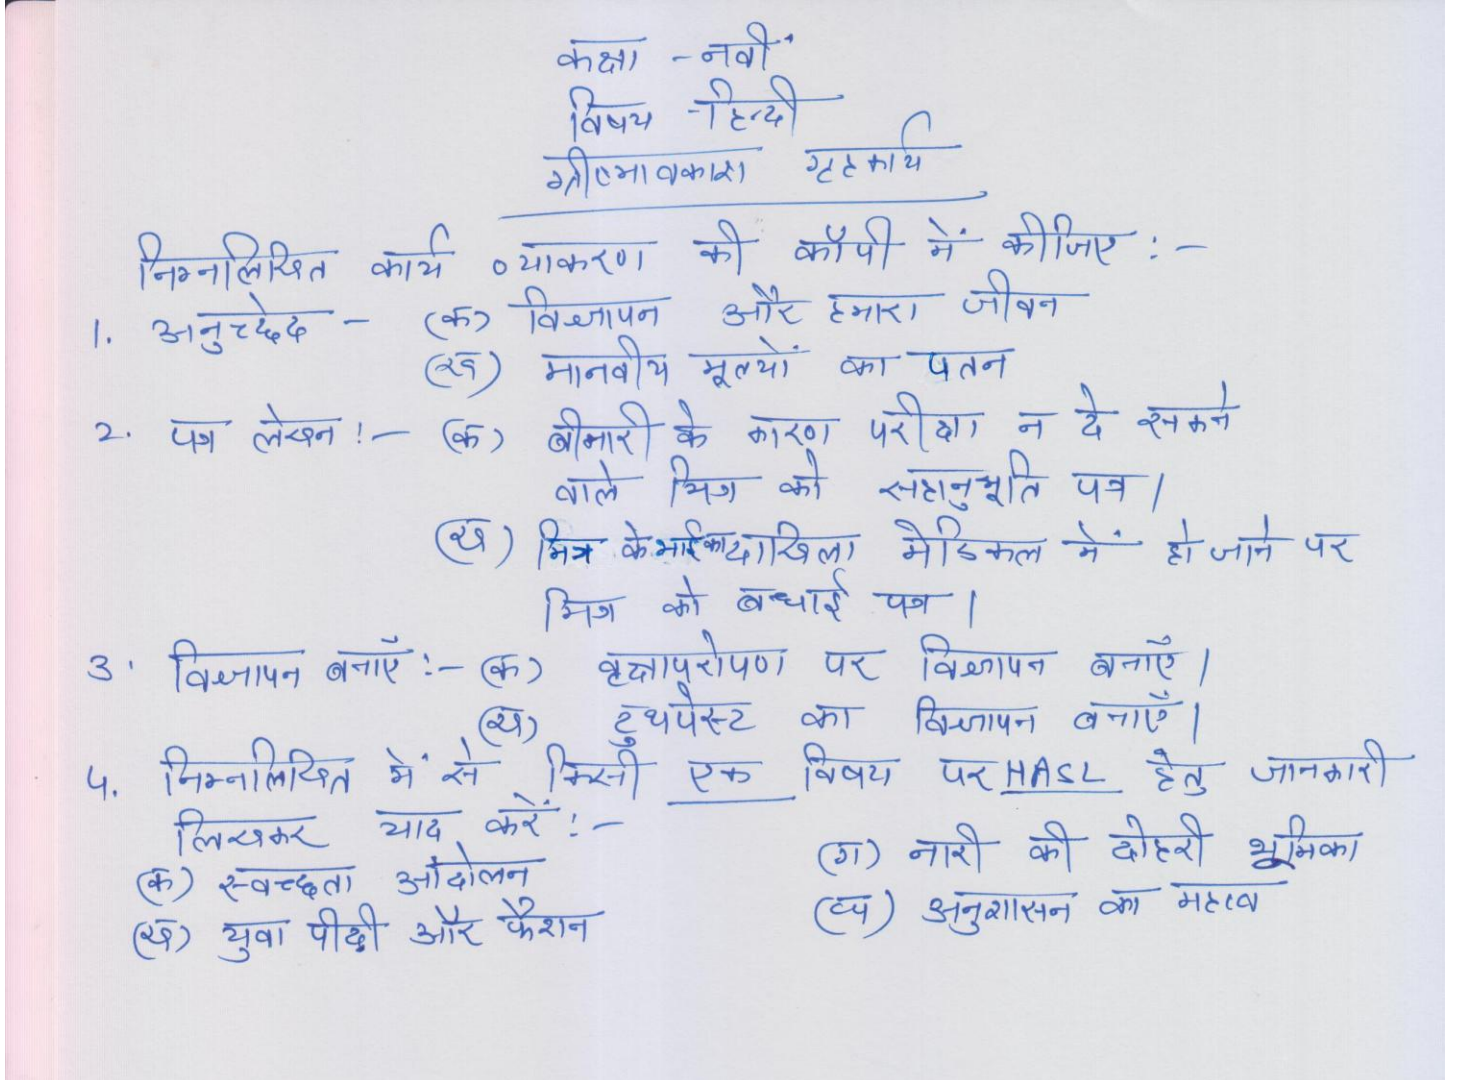 कक्षा - नवीं
विषय - हिन्दी
ग्रीष्मावकाश गृहकार्य
निम्नलिखित कार्य व्याकरण की कॉपी में कीजिए :-
1. अनुच्छेद - (क) विज्ञापन और हमारा जीवन
(ख) मानवीय मूल्यों का पतन
2. पत्र लेखन :- (क) बीमारी के कारण परीक्षा न दे सकने
वाले मित्र को सहानुभूति पत्र।
(ख) मित्र के भाई का दाखिला मेडिकल में हो जाने पर
मित्र को बधाई पत्र।
3. विज्ञापन बनाएँ :- (क) वृक्षापरोपण पर विज्ञापन बनाएँ।
(ख) टुथपेस्ट का विज्ञापन बनाएँ।
4. निम्नलिखित में से किसी एक विषय पर HASL हेतु जानकारी
लिखकर याद करें :-
(क) स्वच्छता आंदोलन (ग) नारी की दोहरी भूमिका
(ख) युवा पीढ़ी और फैशन (घ) अनुशासन का महत्व